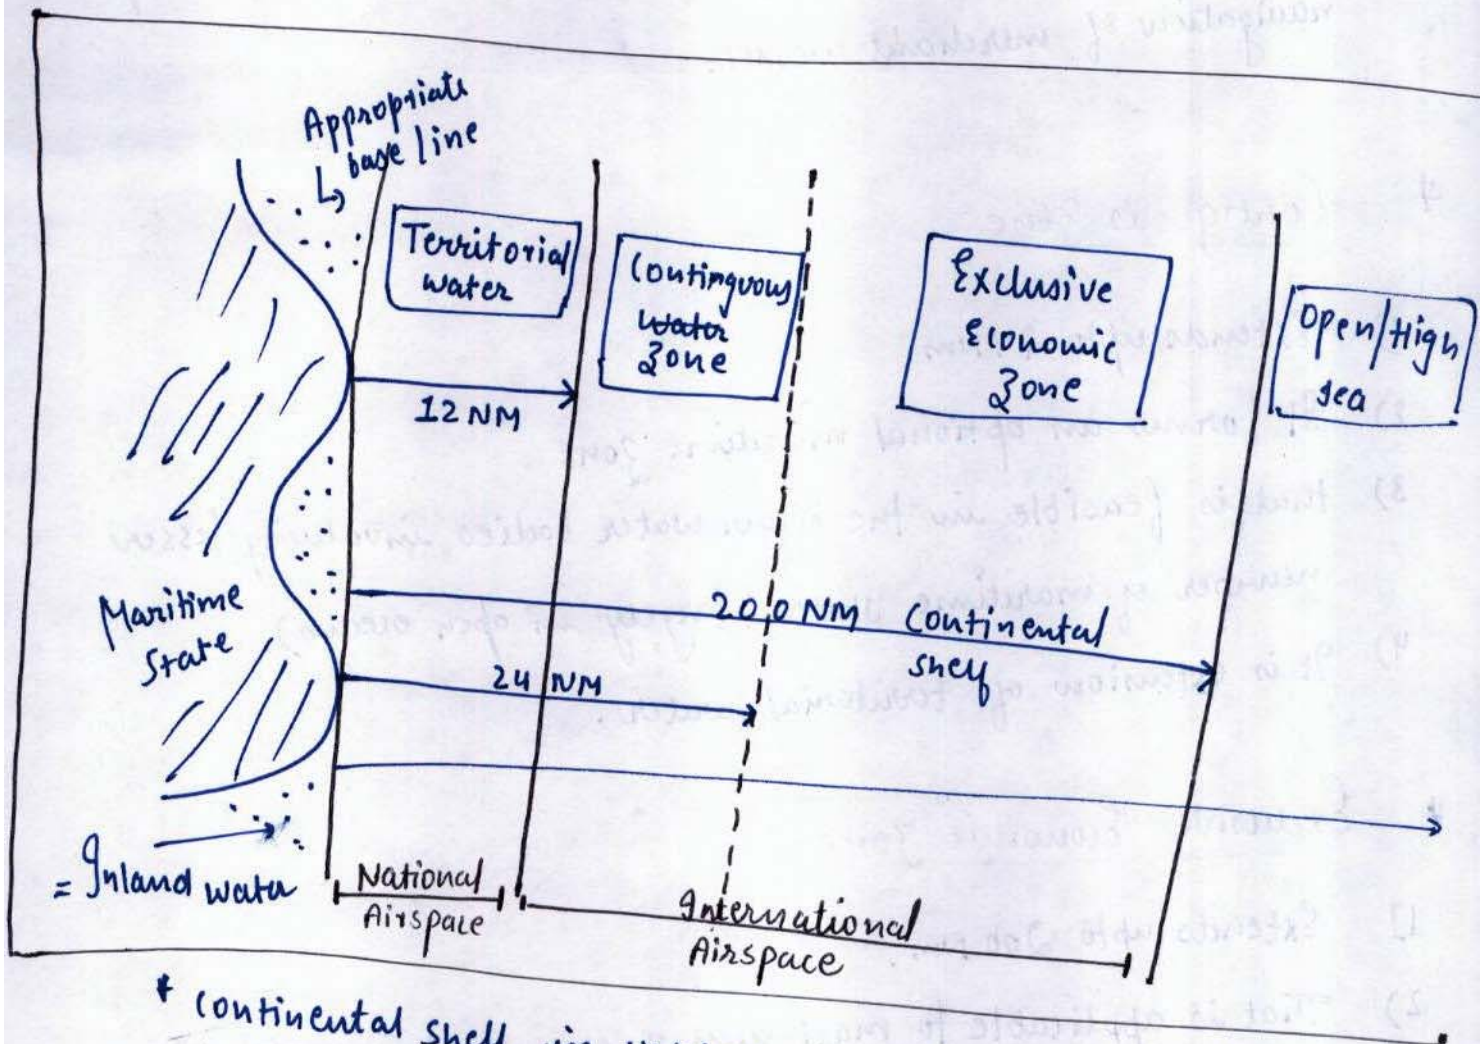 Appropriate
base line
Territorial
water
Continguous
water
Zone
Exclusive
Economic
Zone
Open/High
sea
12 NM
200 NM Continental
shelf
24 NM
Maritime
State
= Inland water
National
Airspace
International
Airspace
* Continental shelf